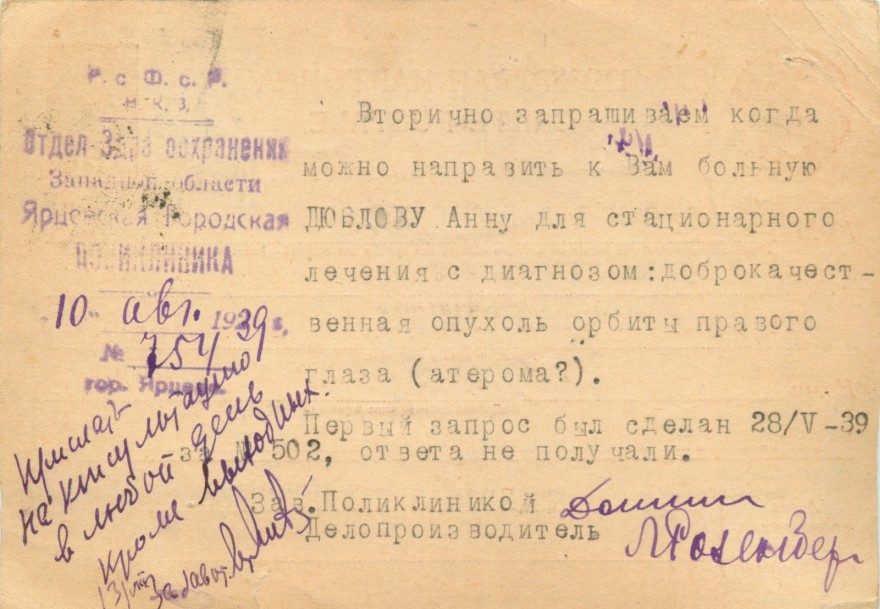 Р. с Ф. с. Р.
Н. К. З.
Отдел Здравоохранения
Западной области
Ярцевская Городская
ПОЛИКЛИНИКА
"10" авг. 1939 г.
№ 754
гор. Ярцево.
Вторично запрашиваем когда
можно направить к Вам больную
ДЮБЛОВУ Анну для стационарного
лечения с диагнозом:доброкачест-
венная опухоль орбиты правого
глаза (атерома?).
Первый запрос был сделан 28/V-39
за № 502, ответа не получали.
Зав.Поликлиникой
Делопроизводитель
Л Розенберг
Прислать
на консультацию
в любой день
кроме выходных.